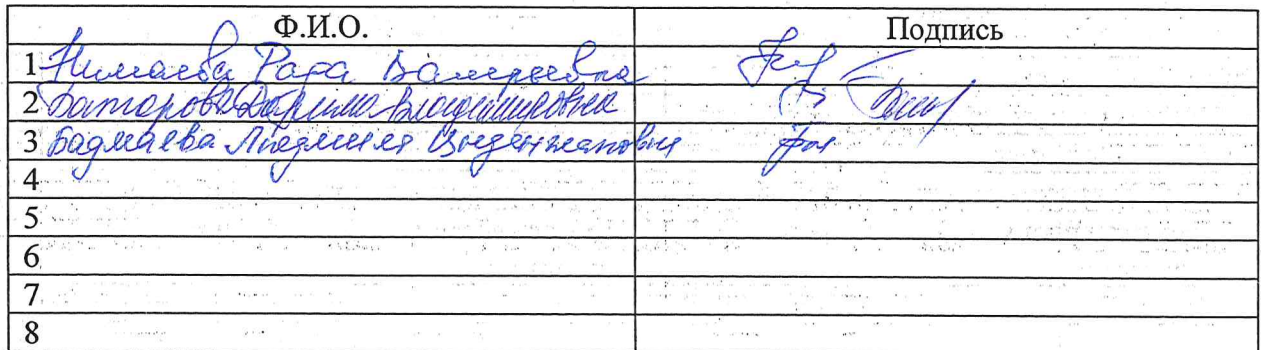 Ф.И.О. Подпись
1 Нимаева Рада Валерьевна
2 Баторова Дарима Владимировна
3 Бадмаева Людмила Цыденжаповна
4
5
6
7
8